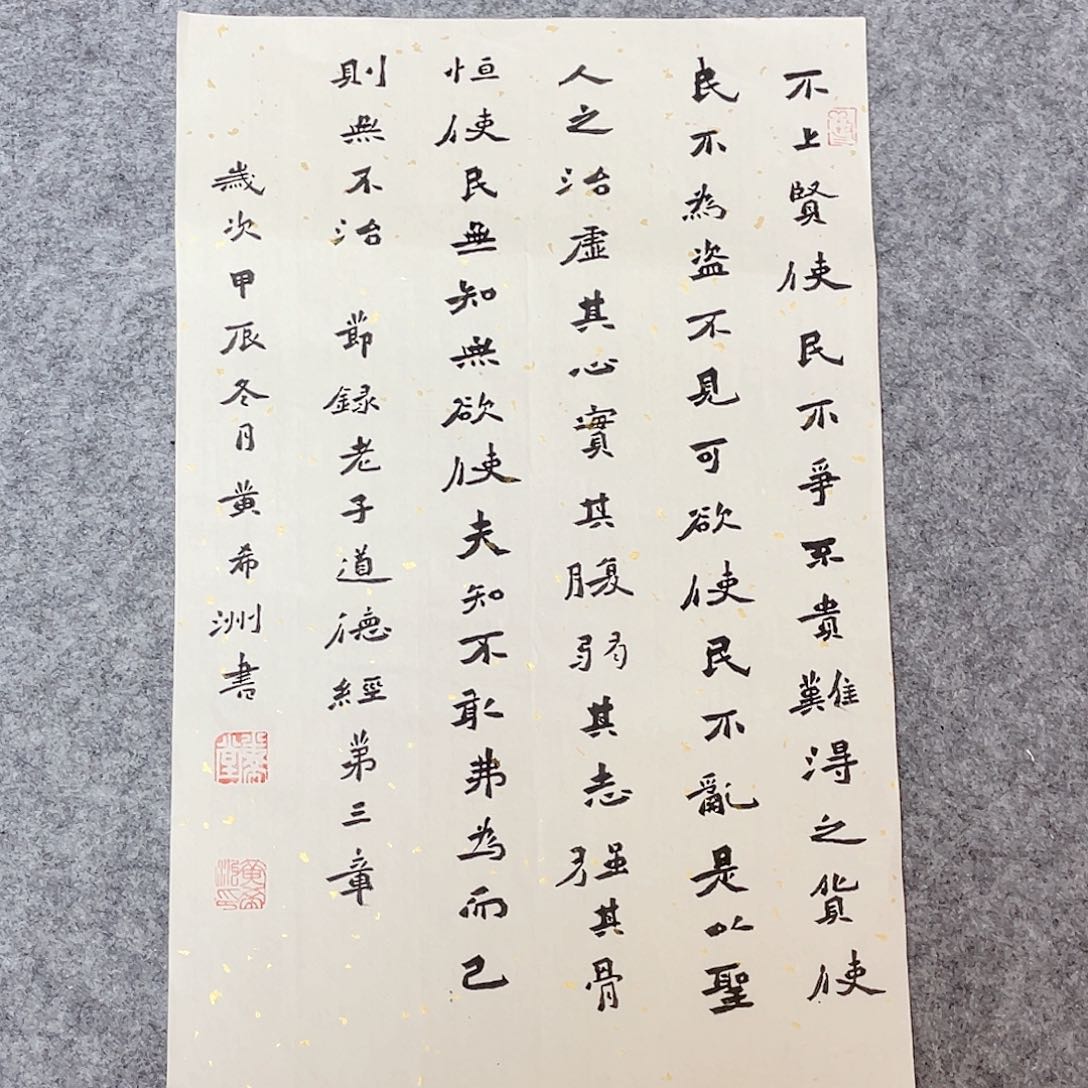 不上賢使民不爭不貴難淂之貨使
民不為盗不見可欲使民不亂是以聖
人之治虛其心實其腹弱其志强其骨
恒使民無知無欲使夫知不敢弗為而已
則無不治 節録老子道德經第三章
歲次甲辰冬月黄希洲書